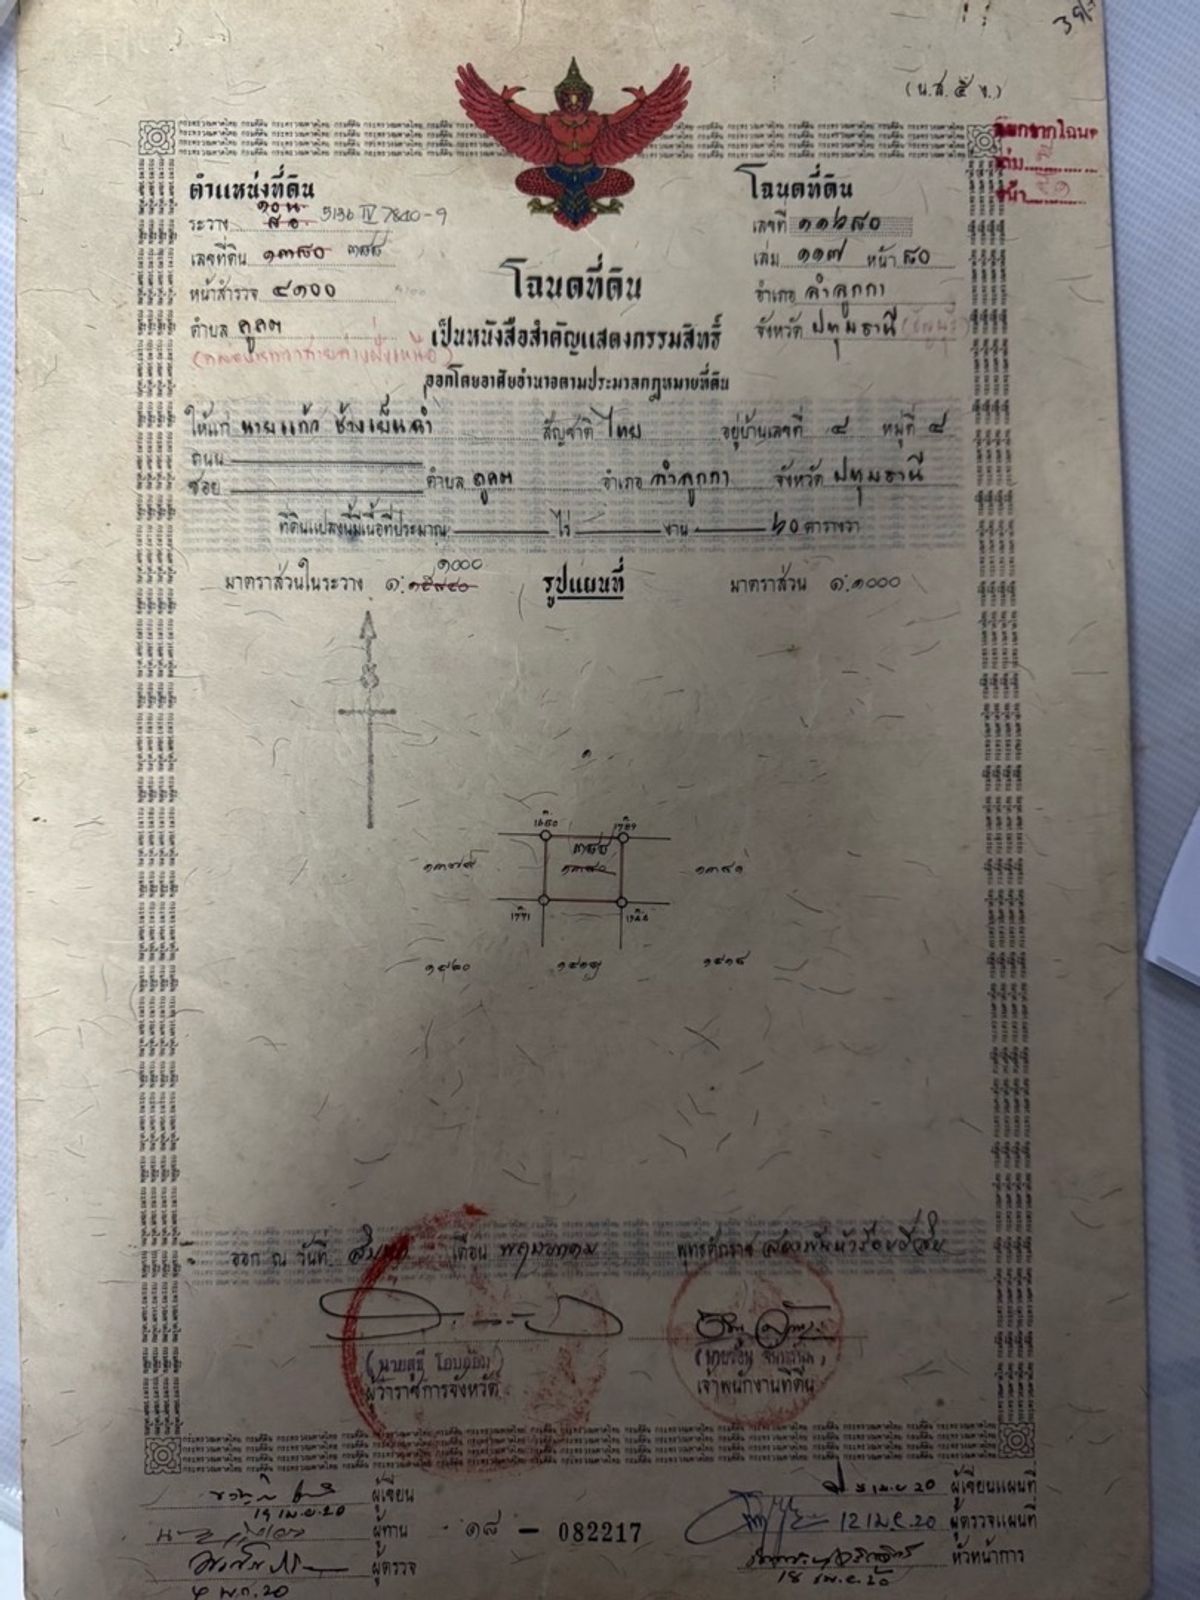 (น.ส. ๔ จ.)
ตำแหน่งที่ดิน
โฉนดที่ดิน
ออกจากโฉนด
เล่ม
หน้า
ระวาง 5136 IV 7840-9
เลขที่ดิน ๑๓๘๐ ๓๘๘
หน้าสำรวจ ๔๑๐๐
ตำบล คูคต
เลขที่ ๑๑๖๘๐
เล่ม ๑๑๗ หน้า ๘๐
อำเภอ ลำลูกกา
จังหวัด ปทุมธานี (ธัญบุรี)
โฉนดที่ดิน
เป็นหนังสือสำคัญแสดงกรรมสิทธิ์
ออกโดยอาศัยอำนาจตามประมวลกฎหมายที่ดิน
ให้แก่ นายแก้ว ช้างเย็นฉ่ำ สัญชาติ ไทย อยู่บ้านเลขที่ ๔ หมู่ที่ ๔
ถนน
ซอย ตำบล คูคต อำเภอ ลำลูกกา จังหวัด ปทุมธานี
ที่ดินแปลงนี้มีเนื้อที่ประมาณ ไร่ งาน ๖๐ ตารางวา
๑๐๐๐
มาตราส่วนในระวาง ๑: รูปแผนที่ มาตราส่วน ๑:๑๐๐๐
๑
๓๘๘
๑๓๗๙ ๑๓๘๐ ๑๓๘๑
๑๔๒๐ ๑๔๑๙ ๑๔๑๘
ออก ณ วันที่ สิบหก เดือน พฤษภาคม พุทธศักราช สองพันห้าร้อยยี่สิบ
(นายสุธี โอบอ้อม)
ผู้ว่าราชการจังหวัด
เจ้าพนักงานที่ดิน
ผู้เขียน
19 เม.ย.20
ผู้ทาน
ผู้ตรวจ
๔ พ.ค.20
๑๘ - 082217
เม.ย 20 ผู้เขียนแผนที่
12 เม.ย.20 ผู้ตรวจแผนที่
หัวหน้าการ
18 เม.ย.20